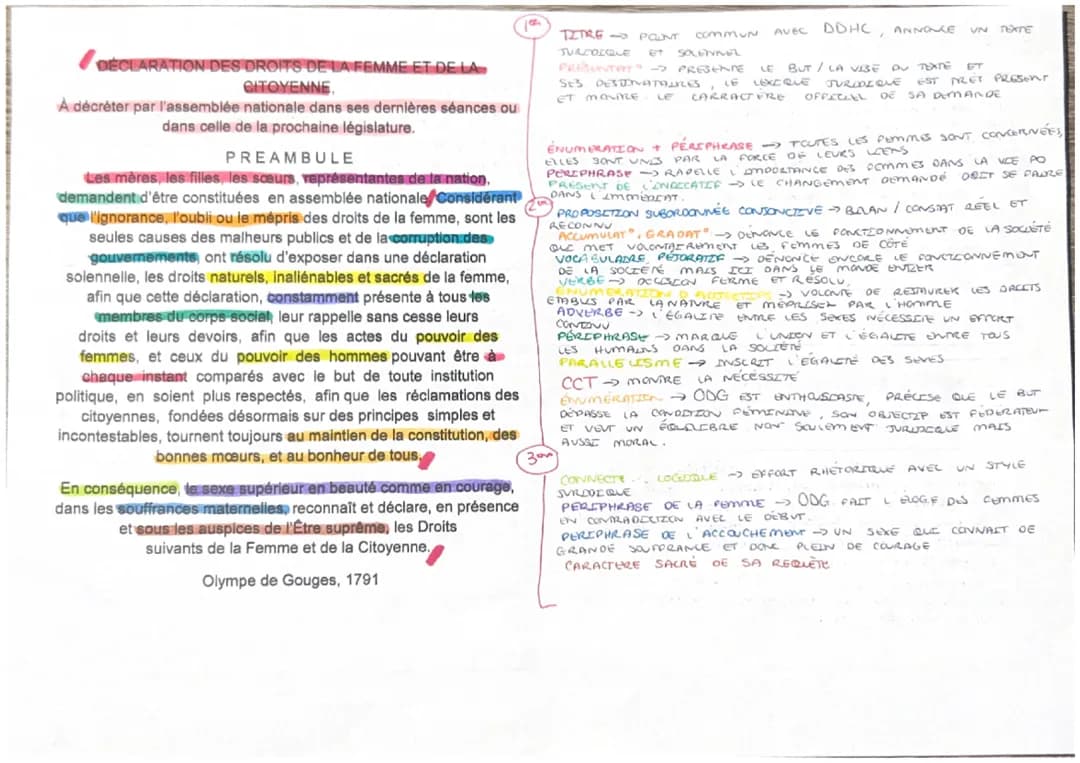 DÉCLARATION DES DROITS DE LA FEMME ET DE LA
CITOYENNE,
À décréter par l'assemblée nationale dans ses dernières séances ou
dans celle de la prochaine législature.
PREAMBULE
Les mères, les filles, les sœurs, représentantes de la nation,
demandent d'être constituées en assemblée nationale. Considérant
que l'ignorance, l'oubli ou le mépris des droits de la femme, sont les
seules causes des malheurs publics et de la corruption des
gouvernements, ont résolu d'exposer dans une déclaration
solennelle, les droits naturels, inaliénables et sacrés de la femme,
afin que cette déclaration, constamment présente à tous les
membres du corps social, leur rappelle sans cesse leurs
droits et leurs devoirs, afin que les actes du pouvoir des
femmes, et ceux du pouvoir des hommes pouvant être à
chaque instant comparés avec le but de toute institution
politique, en soient plus respectés, afin que les réclamations des
citoyennes, fondées désormais sur des principes simples et
incontestables, tournent toujours au maintien de la constitution, des
bonnes mœurs, et au bonheur de tous.
En conséquence, le sexe supérieur en beauté comme en courage,
dans les souffrances maternelles, reconnaît et déclare, en présence
et sous les auspices de l'Être suprême, les Droits
suivants de la Femme et de la Citoyenne.
Olympe de Gouges, 1791
1er
TITRE → POINT COMMUN AVEC DDHC, ANNONCE UN TEXTE
JURIDIQUE ET SOLENNEL
PRÉSENTAT° → PRESENTE LE BUT / LA VISÉ DU TEXTE ET
SES DESTINATAIRES, LE LEXIQUE JURIDIQUE EST PRESENT
ET MONTRE LE CARRACTÈRE OFFICIEL DE SA DEMANDE
ÉNUMERATION + PÉRIPHRASE → TOUTES LES FEMMES SONT CONCERNÉES,
ELLES SONT UNIS PAR LA FORCE DE LEURS LIENS
PERIPHRASE → RAPELLE L'IMPORTANCE DES FEMMES DANS LA VIE PO
PRESENT DE L'INDICATIF → LE CHANGEMENT DEMANDÉ DOIT SE FAIRE
DANS L'IMMÉDIAT.
2em
PROPOSITION SUBORDONNÉE CONJONCTIVE → BILAN / CONSTAT RÉEL ET
RECONNU
ACCUMULAT°, GRADAT° → DÉNONCE LE FONCTIONNEMENT DE LA SOCIÉTÉ
QUI MET VOLONTAIREMENT LES FEMMES DE CÔTÉ
VOCABULAIRE PÉJORATIF → DÉNONCE ENCORE LE FONCTIONNEMENT
DE LA SOCIÉTÉ MAIS ICI DANS LE MONDE ENTIER
VERBE → DÉCISION FERME ET RÉSOLU.
ÉNUMERATION D'ADJECTIFS → VOLONTE DE RESTAURER LES DROITS
ETABLIS PAR LA NATURE ET MÉPRISER PAR L'HOMME
ADVERBE → L'ÉGALITÉ ENTRE LES SEXES NÉCESSITE UN EFFORT
CONTINU
PÉRIPHRASE → MARQUE L'UNION ET L'ÉGALITÉ ENTRE TOUS
LES HUMAINS DANS LA SOCIÉTÉ
PARALLELISME → INSCRIT L'ÉGALITÉ DES SEXES
CCT → MONTRE LA NÉCESSITÉ
ÉNUMERATION → ODG EST ENTHOUSIASTE, PRÉCISE QUE LE BUT
DÉPASSE LA CONDITION FÉMININE, SON OBJECTIF EST FÉDÉRATEUR
ET VEUT UN ÉQUILIBRE NON SEULEMENT JURIDIQUE MAIS
AUSSI MORAL.
3em
CONNECTE LOGIQUE → EFFORT RHÉTORIQUE AVEC UN STYLE
JURIDIQUE
PÉRIPHRASE DE LA FEMME → ODG FAIT L'ÉLOGE DES FEMMES
EN CONTRADICTION AVEC LE DÉBUT.
PERIPHRASE DE L'ACCOUCHEMENT → UN SEXE QUI CONNAIT DE
GRANDE SOUFFRANCE ET DONC PLEIN DE COURAGE
CARACTERE SACRÉ DE SA REQUÊTE